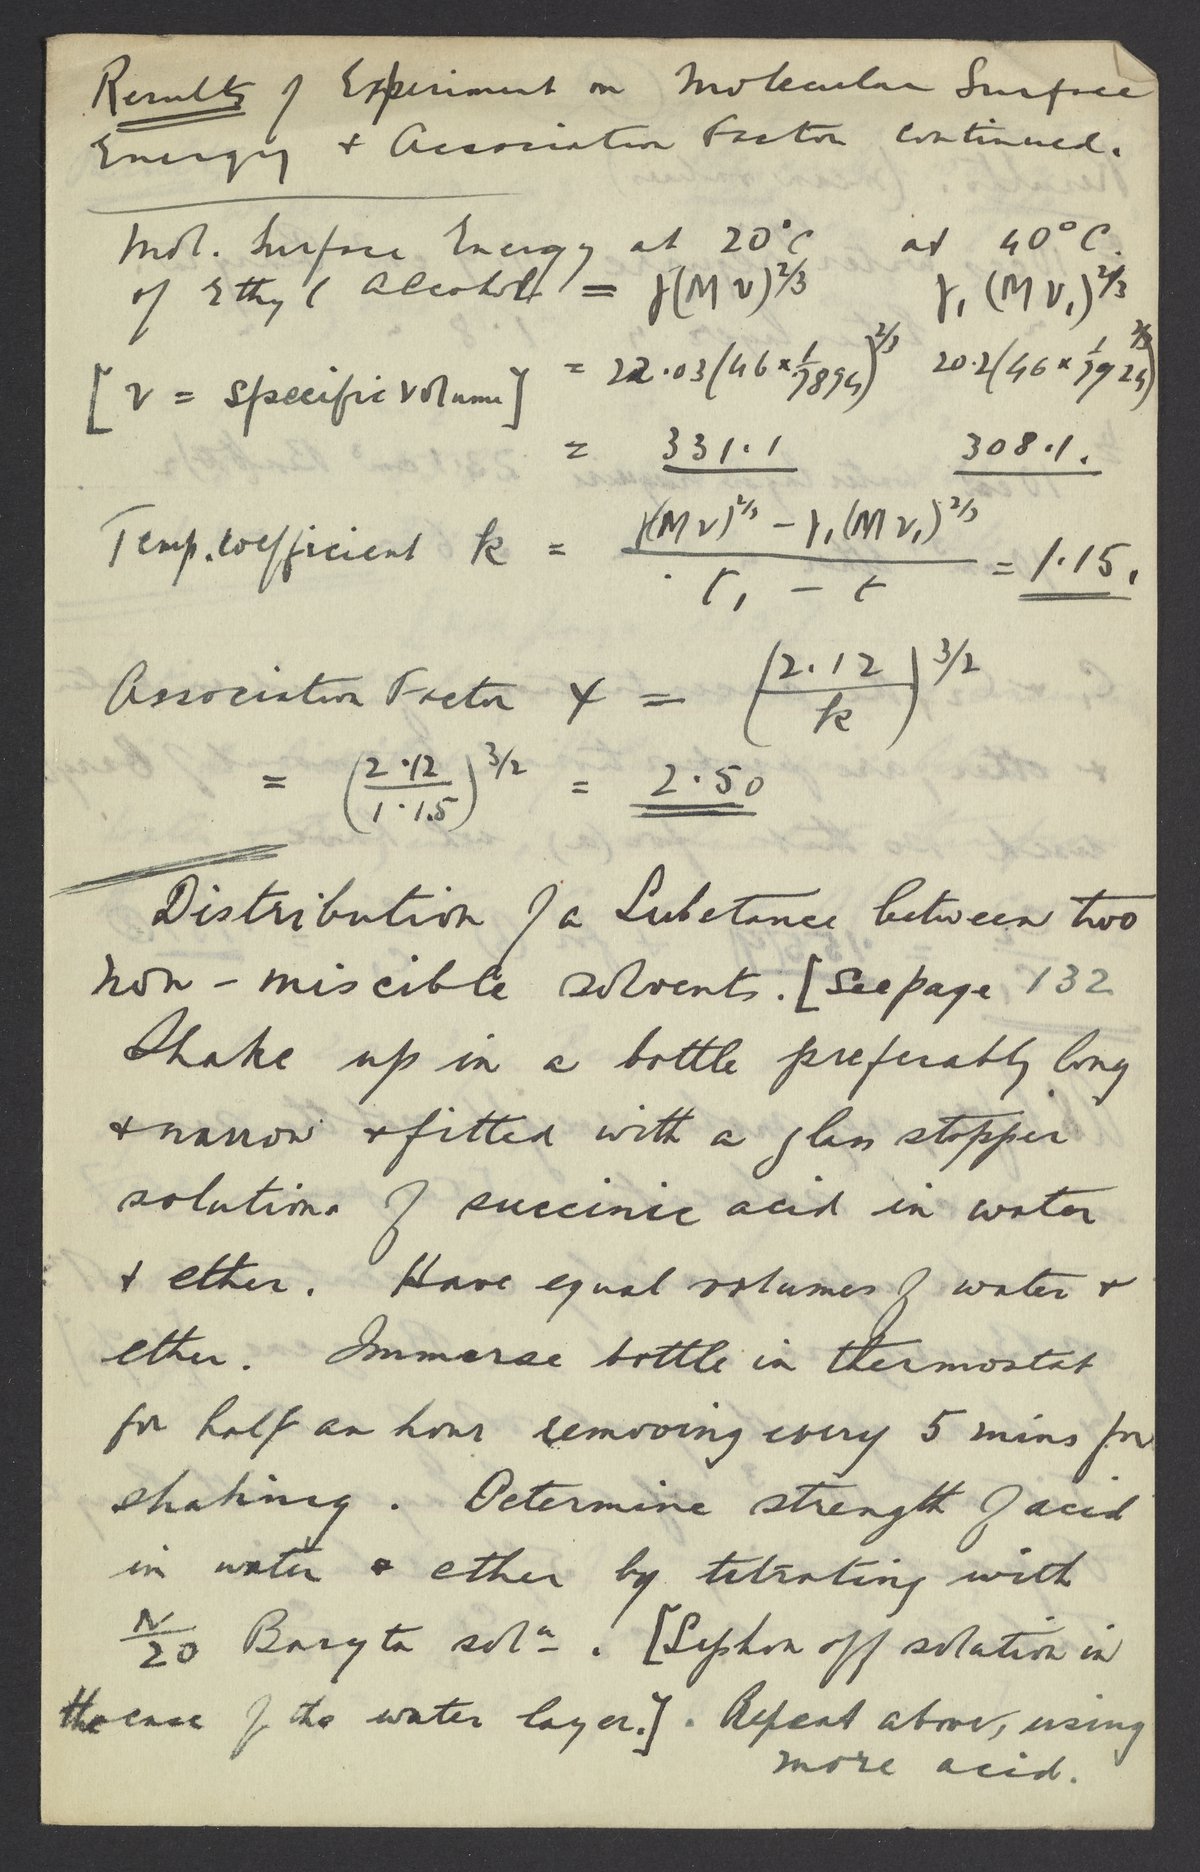 Results of Experiment on Molecular Surface
Energy & Association Factor continued.
Mol. Surface Energy at 20°C at 40°C.
of Ethyl Alcohol = γ(Mv)^2/3 γ₁(Mv₁)^2/3
= 22.03(46 × 1/.7894)^2/3 20.2(46 × 1/.7924)^2/3
[v = specific volume]
= 331.1 308.1.
Temp. coefficient k = (γ(Mv)^2/3 − γ₁(Mv₁)^2/3)/(t₁ − t) = 1.15.
Association Factor x = (2.12/k)^3/2
= (2.12/1.15)^3/2 = 2.50
Distribution of a Substance between two
non-miscible solvents. [See page 132
Shake up in a bottle preferably long
& narrow & fitted with a glass stopper
solutions of succinic acid in water
& ether. Have equal volumes of water &
ether. Immerse bottle in thermostat
for half an hour removing every 5 mins for
shaking. Determine strength of acid
in water & ether by titrating with
N/20 Baryta solⁿ. [Syphon off solution in
the case of the water layer.]. Repeat above, using
more acid.